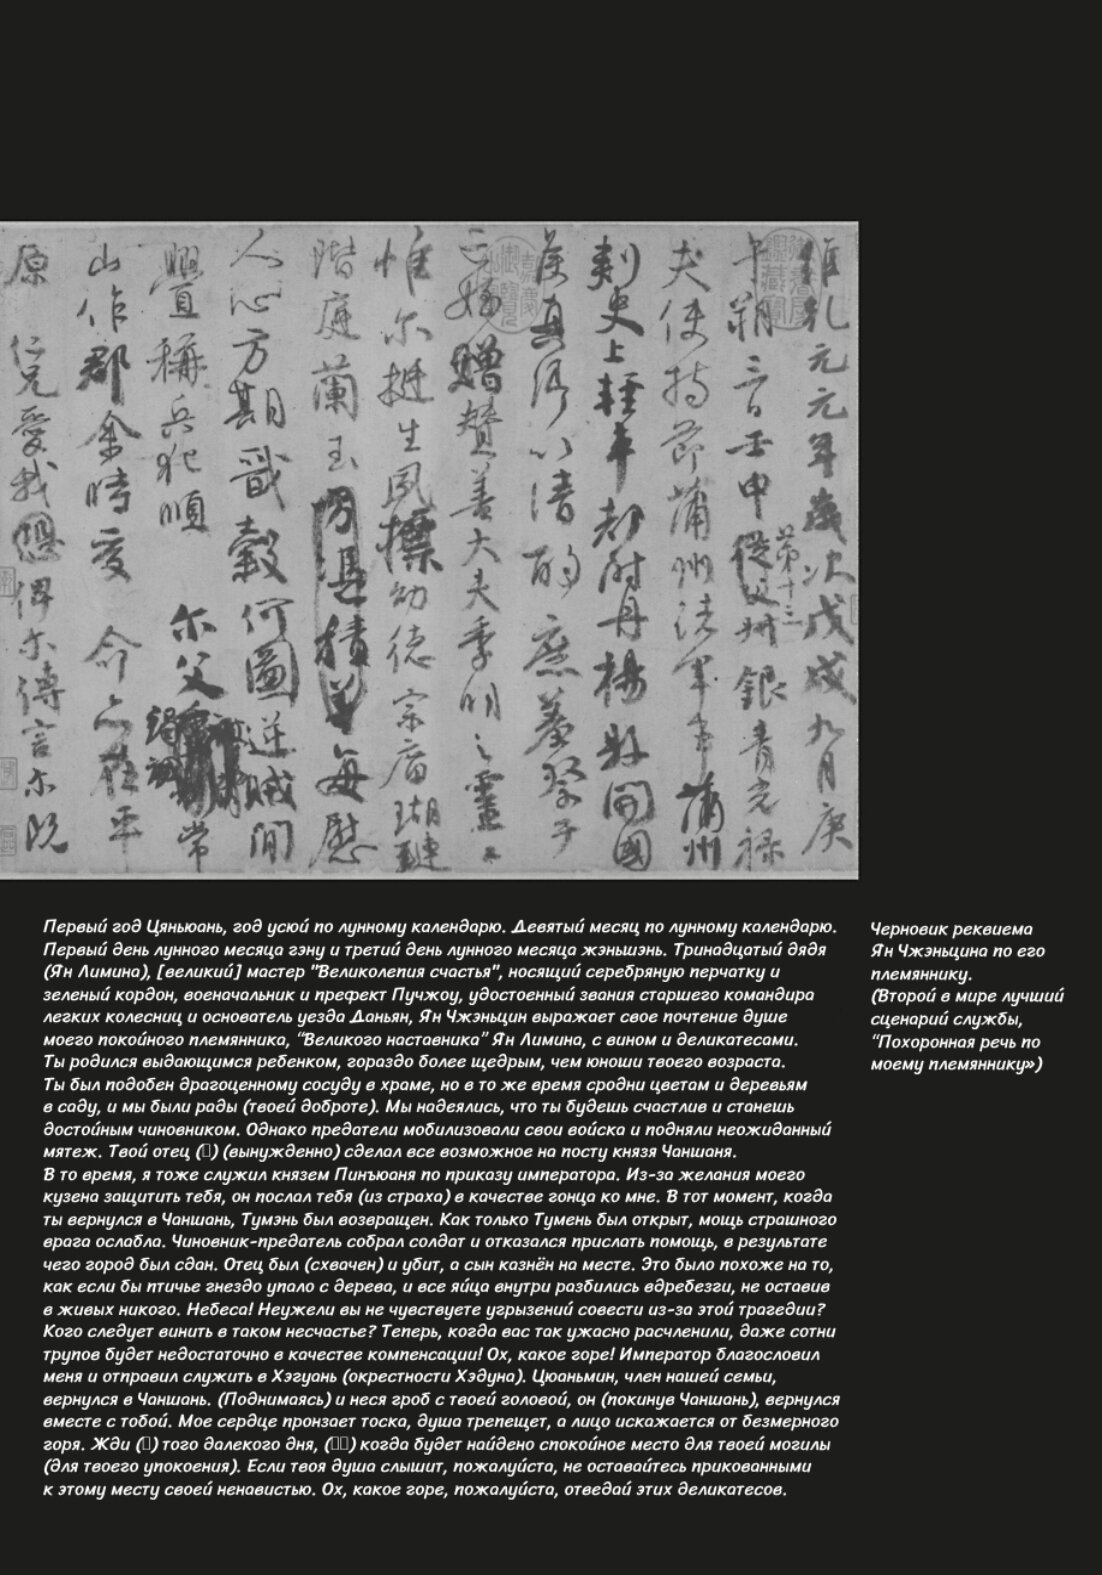 維乾元元年歲次戊戌九月庚
午朔三日壬申第十三從父叔銀青光祿
夫使持節蒲州諸軍事蒲州
刺史上輕車都尉丹楊縣開國
侯真卿以清酌庶羞祭于
亡姪贈贊善大夫季明之靈曰
惟爾挺生夙標幼德宗廟瑚璉
階庭蘭玉方憑積善每慰
人心方期戩穀何圖逆賊間
釁稱兵犯順爾父竭誠常
山作郡余時受命亦在平
原仁兄愛我恐俾爾傳言爾既
Первый год Цяньюань, год усюй по лунному календарю. Девятый месяц по лунному календарю.
Первый день лунного месяца гэну и третий день лунного месяца жэньшэнь. Тринадцатый дядя
(Ян Лимина), [великий] мастер "Великолепия счастья", носящий серебряную перчатку и
зеленый кордон, военачальник и префект Пучжоу, удостоенный звания старшего командира
легких колесниц и основатель уезда Даньян, Ян Чжэньцин выражает свое почтение душе
моего покойного племянника, “Великого наставника” Ян Лимина, с вином и деликатесами.
Ты родился выдающимся ребенком, гораздо более щедрым, чем юноши твоего возраста.
Ты был подобен драгоценному сосуду в храме, но в то же время сродни цветам и деревьям
в саду, и мы были рады (твоей доброте). Мы надеялись, что ты будешь счастлив и станешь
достойным чиновником. Однако предатели мобилизовали свои войска и подняли неожиданный
мятеж. Твой отец (□) (вынужденно) сделал все возможное на посту князя Чаншаня.
В то время, я тоже служил князем Пинъюаня по приказу императора. Из-за желания моего
кузена защитить тебя, он послал тебя (из страха) в качестве гонца ко мне. В тот момент, когда
ты вернулся в Чаншань, Тумэнь был возвращен. Как только Тумень был открыт, мощь страшного
врага ослабла. Чиновник-предатель собрал солдат и отказался прислать помощь, в результате
чего город был сдан. Отец был (схвачен) и убит, а сын казнён на месте. Это было похоже на то,
как если бы птичье гнездо упало с дерева, и все яйца внутри разбились вдребезги, не оставив
в живых никого. Небеса! Неужели вы не чувствуете угрызений совести из-за этой трагедии?
Кого следует винить в таком несчастье? Теперь, когда вас так ужасно расчленили, даже сотни
трупов будет недостаточно в качестве компенсации! Ох, какое горе! Император благословил
меня и отправил служить в Хэгуань (окрестности Хэдуна). Цюаньмин, член нашей семьи,
вернулся в Чаншань. (Поднимаясь) и неся гроб с твоей головой, он (покинув Чаншань), вернулся
вместе с тобой. Мое сердце пронзает тоска, душа трепещет, а лицо искажается от безмерного
горя. Жди (□) того далекого дня, (□□) когда будет найдено спокойное место для твоей могилы
(для твоего упокоения). Если твоя душа слышит, пожалуйста, не оставайтесь прикованными
к этому месту своей ненавистью. Ох, какое горе, пожалуйста, отведай этих деликатесов.
Черновик реквиема
Ян Чжэньцина по его
племяннику.
(Второй в мире лучший
сценарий службы,
“Похоронная речь по
моему племяннику»)